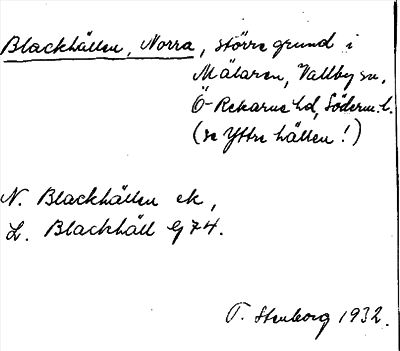 Blackhällen, Norra, större grund i
Mälaren, Vallby sn,
Ö-Rekarne hd, Söderm. l.
(se Yttre hällen!)
N. Blackhällen ek,
L. Blackhäll Gj 74.
T. Stenborg 1932.